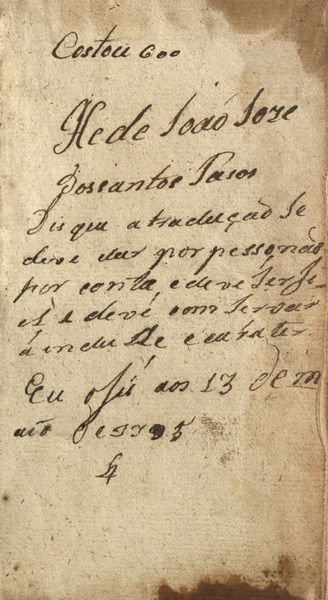 Costou 600
He de João Joze
Dossantos Pasos
Dis que a tradução se
deve dar por pessoa não
por conta, e deve ser se-
e deve com servar
a indu e carater
Eu o fis aos 13 de m
aio de 
4